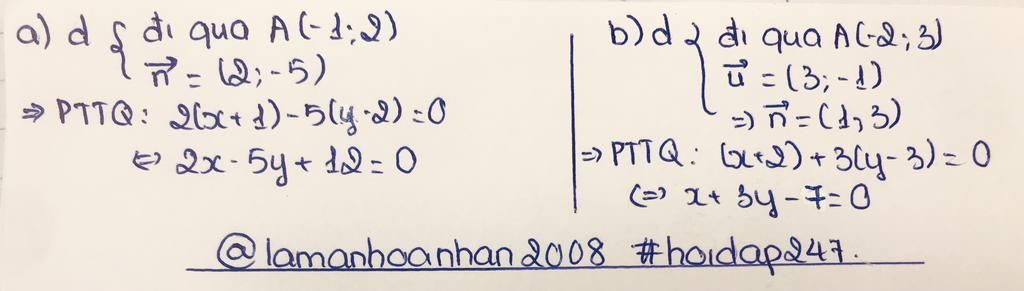 a) d { đi qua A(-1;2)
n⃗ = (2;-5)
⇒ PTTQ: 2(x+1)-5(y-2)=0
⇔ 2x-5y+12=0
b) d { đi qua A(-2;3)
u⃗ = (3;-1)
⇒ n⃗ = (1;3)
⇒ PTTQ: (x+2)+3(y-3)=0
⇔ x+3y-7=0
@lamanhoanhan2008 #hoidap247.